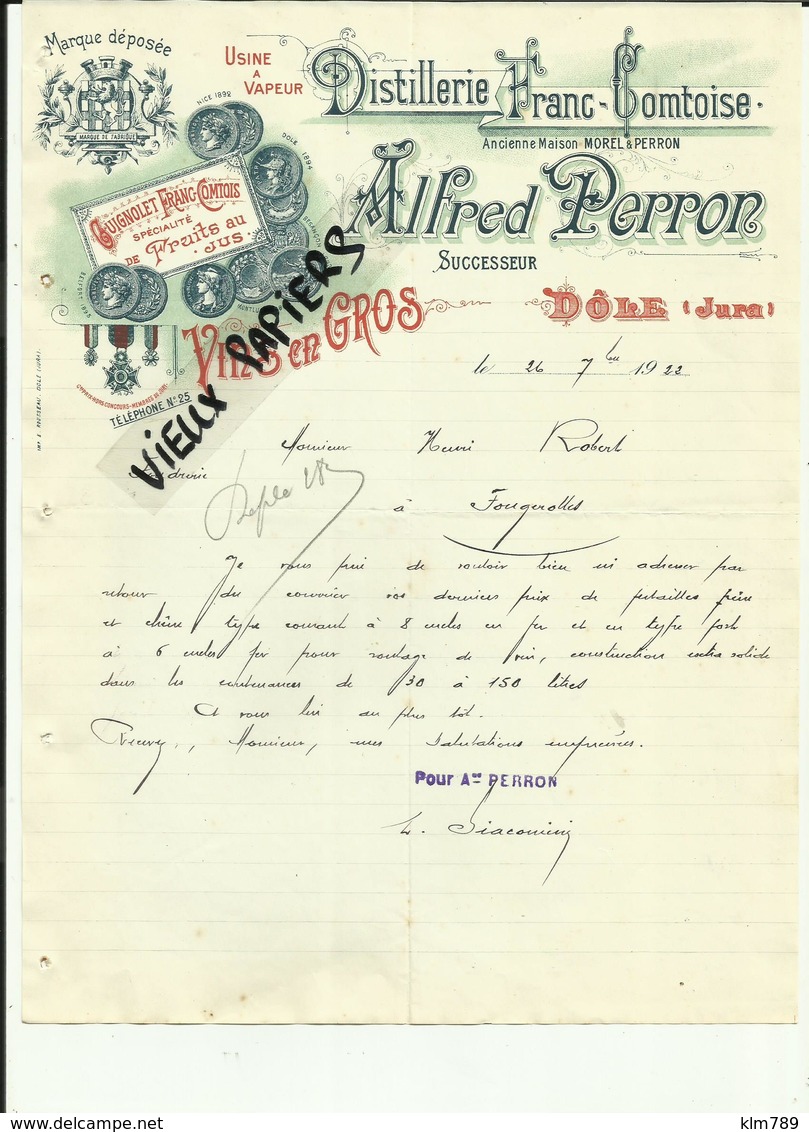 Marque déposée
MARQUE DE FABRIQUE
USINE
A
VAPEUR
Distillerie Franc-Comtoise.
Ancienne Maison MOREL & PERRON
Alfred Perron
SUCCESSEUR
NICE 1892
DOLE 1894
BESANÇON
BELFORT
GUIGNOLET FRANC-COMTOIS
SPÉCIALITÉ
DE Fruits au
JUS
VINS en GROS
DÔLE (Jura)
HORS CONCOURS - MEMBRES DU JURY
TÉLÉPHONE N° 25
VIEUX PAPIERS
le 26 7bre 1922
Monsieur Henri Robert
à Fougerolles
Je vous prie de vouloir bien m'adresser par
retour du courrier vos derniers prix de futailles frêne
et chêne type courant à 8 cercles en fer et en type fort
à 6 cercles fer pour soutage de vin, construction extra solide
dans les contenances de 30 à 150 litres
Et vous lire au plus tôt.
Recevez, Monsieur, mes salutations empressées.
Pour Aed PERRON
L. Giacomini
klm789